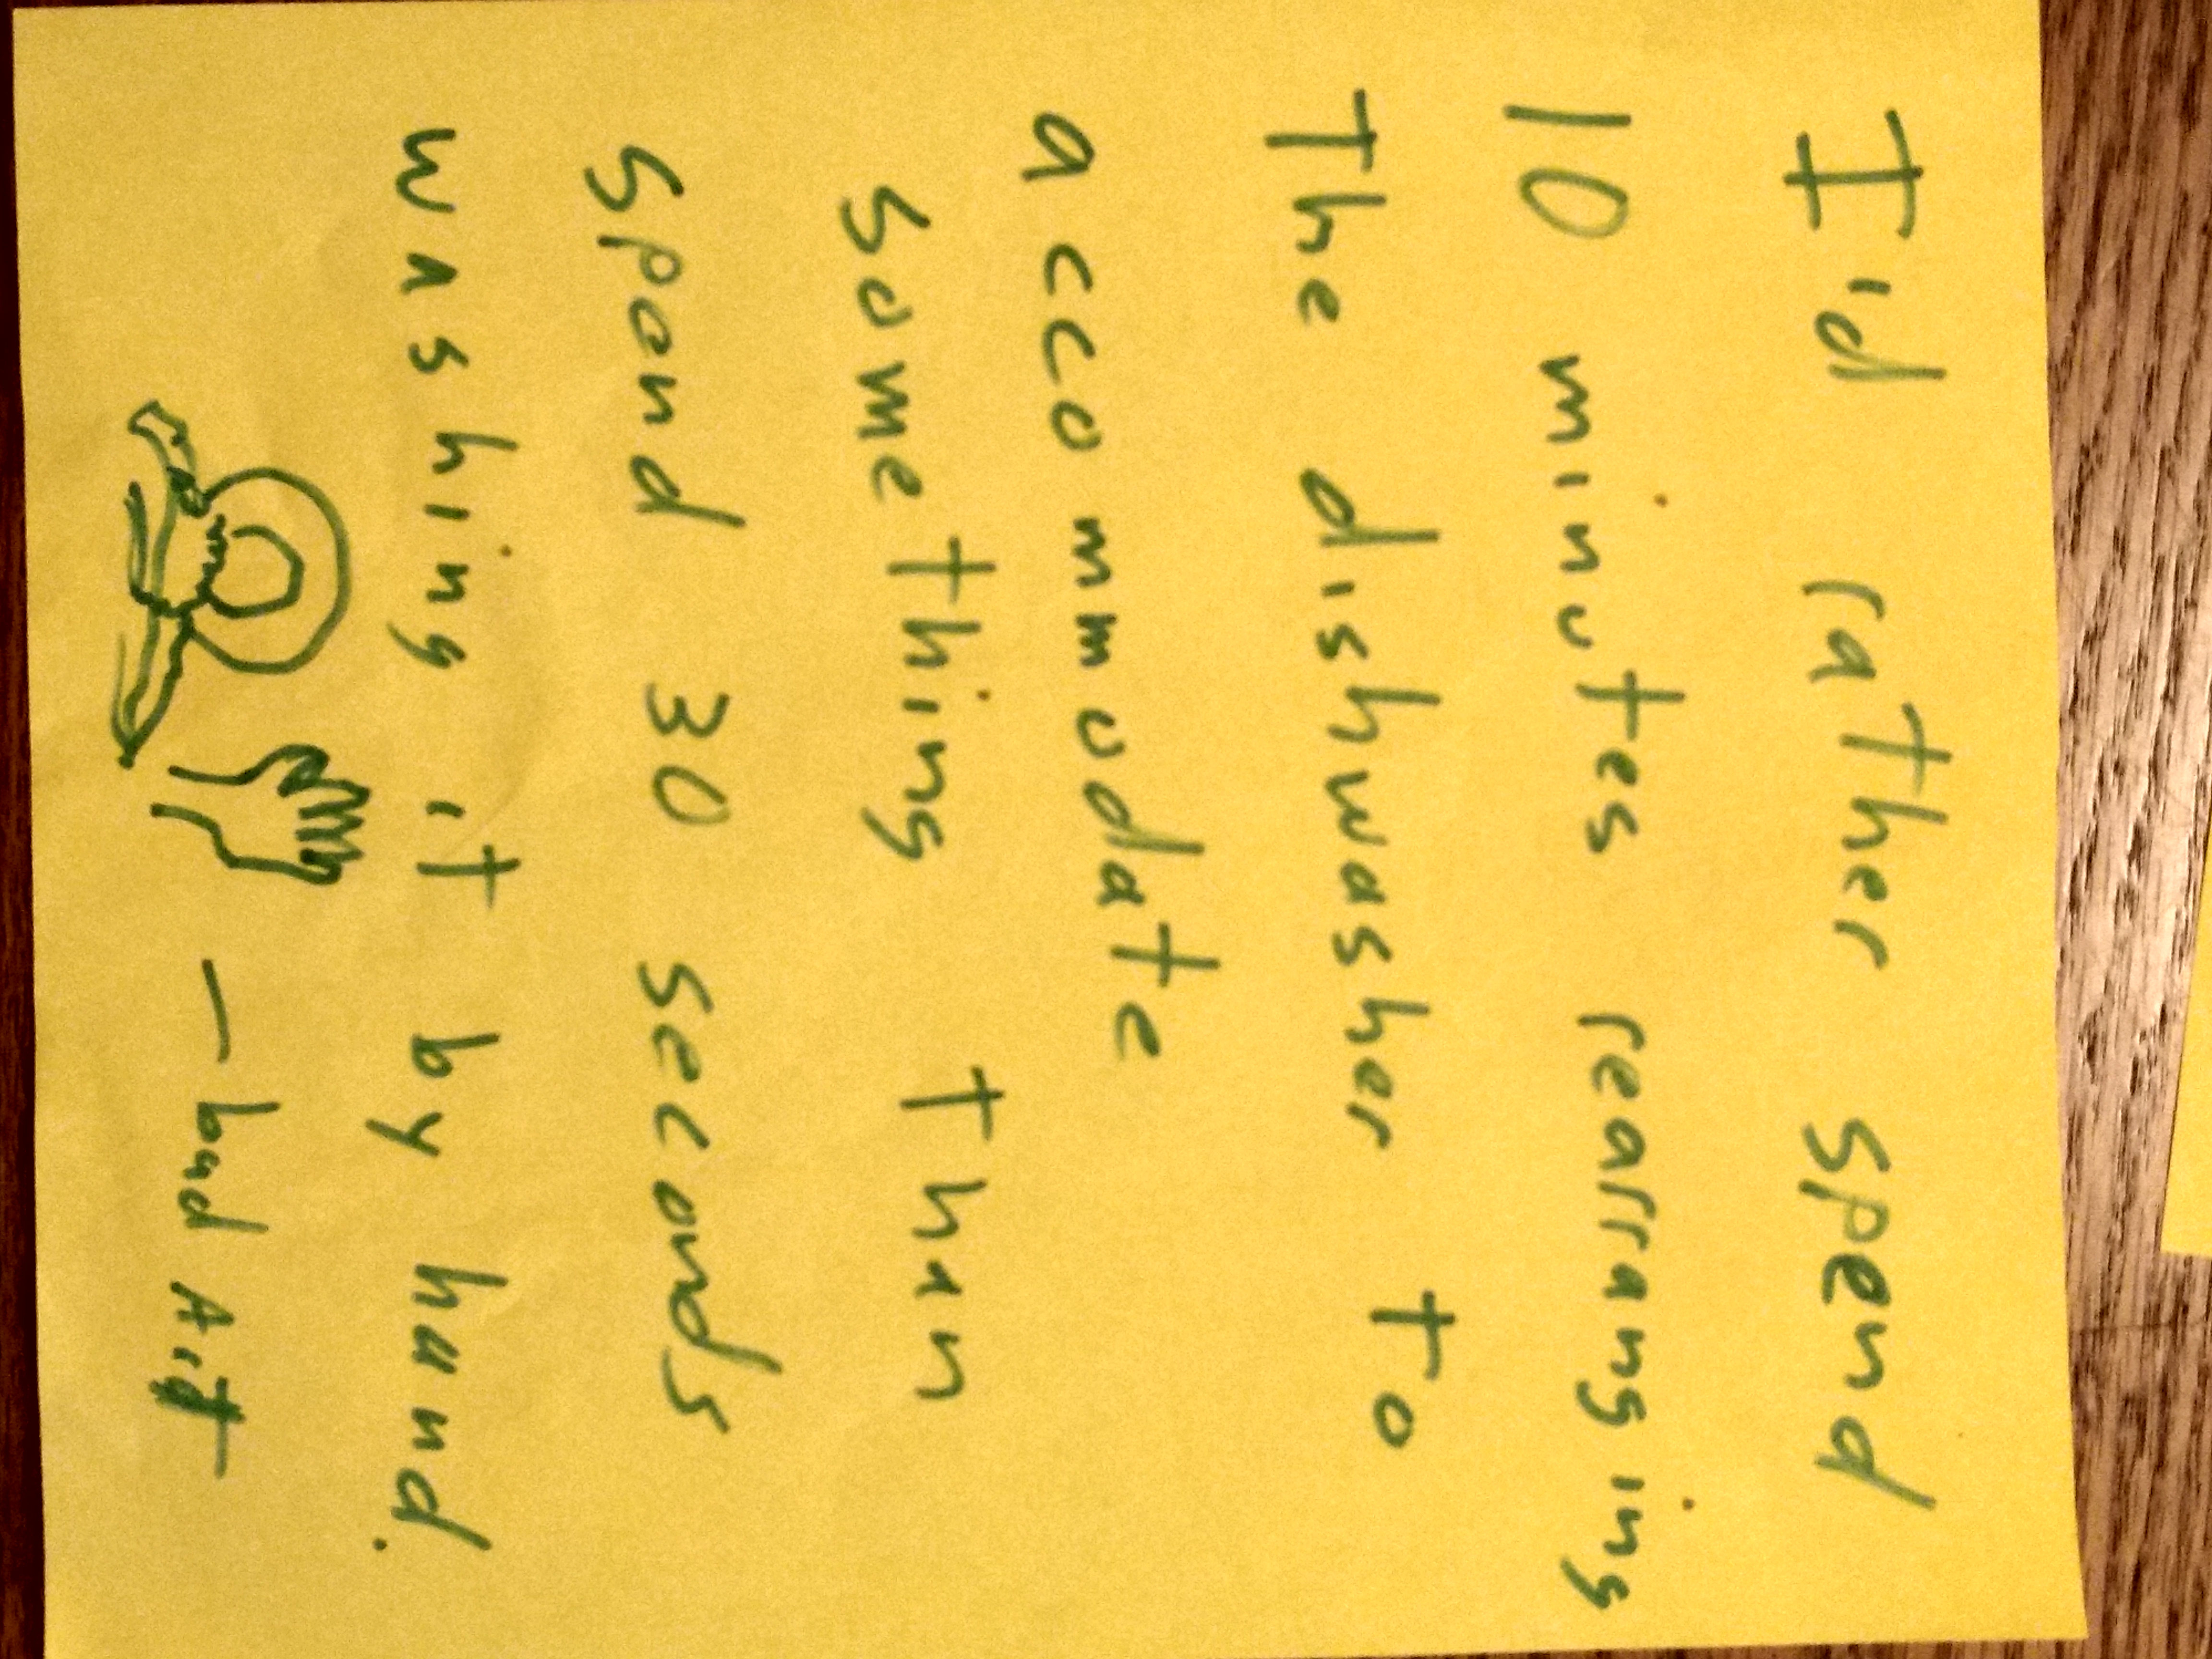 I'd rather spend
10 minutes rearranging
The dishwasher to
accommodate
something than
spend 30 seconds
washing it by hand.
— bad